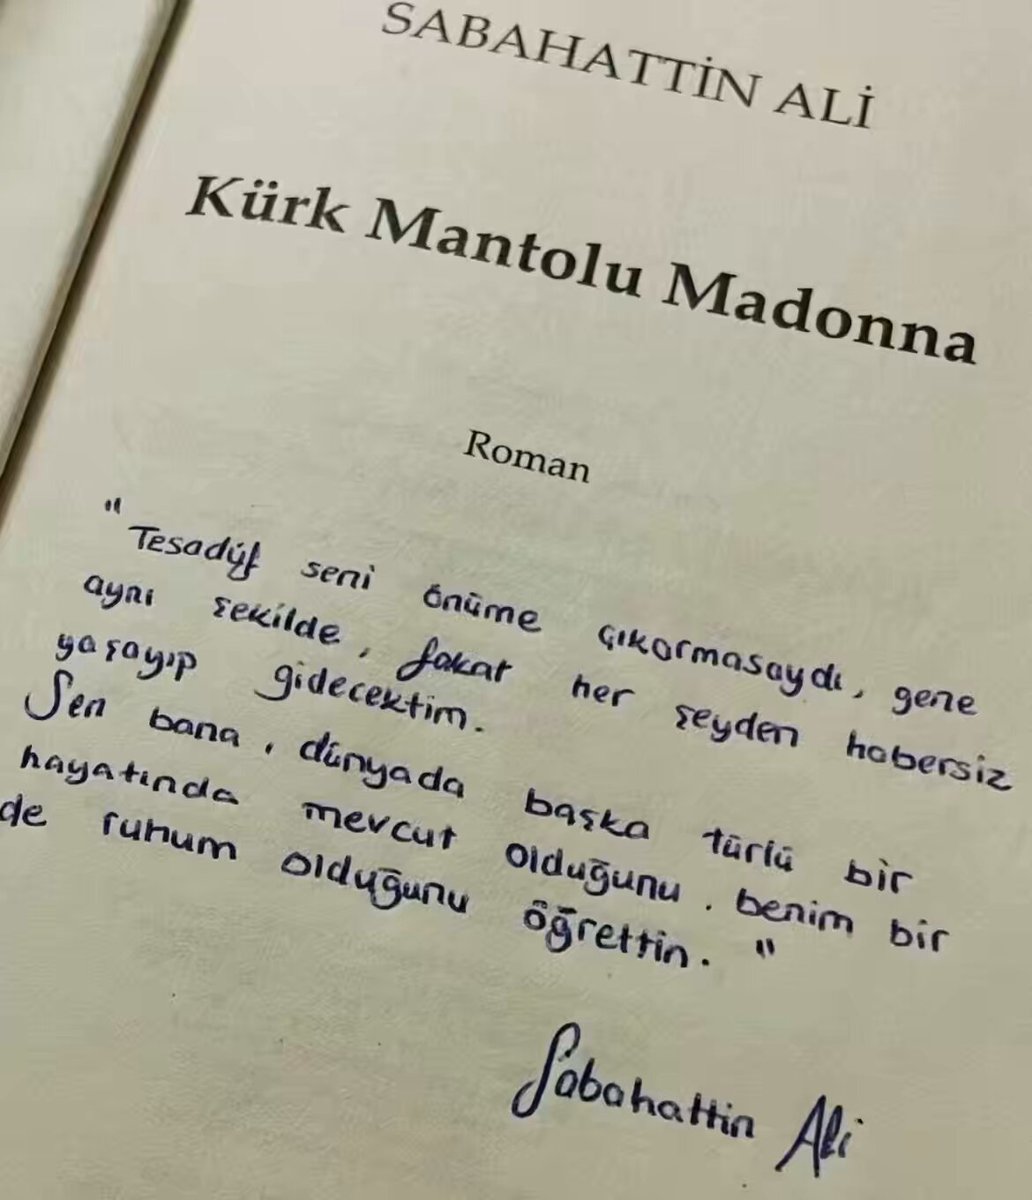 SABAHATTİN ALİ
Kürk Mantolu Madonna
Roman
"Tesadüf seni önüme çıkarmasaydı, gene
aynı şekilde, fakat her şeyden habersiz
yaşayıp gidecektim.
Sen bana, dünyada başka türlü bir
hayatında mevcut olduğunu. benim bir
de ruhum olduğunu öğrettin."
Sabahattin Ali